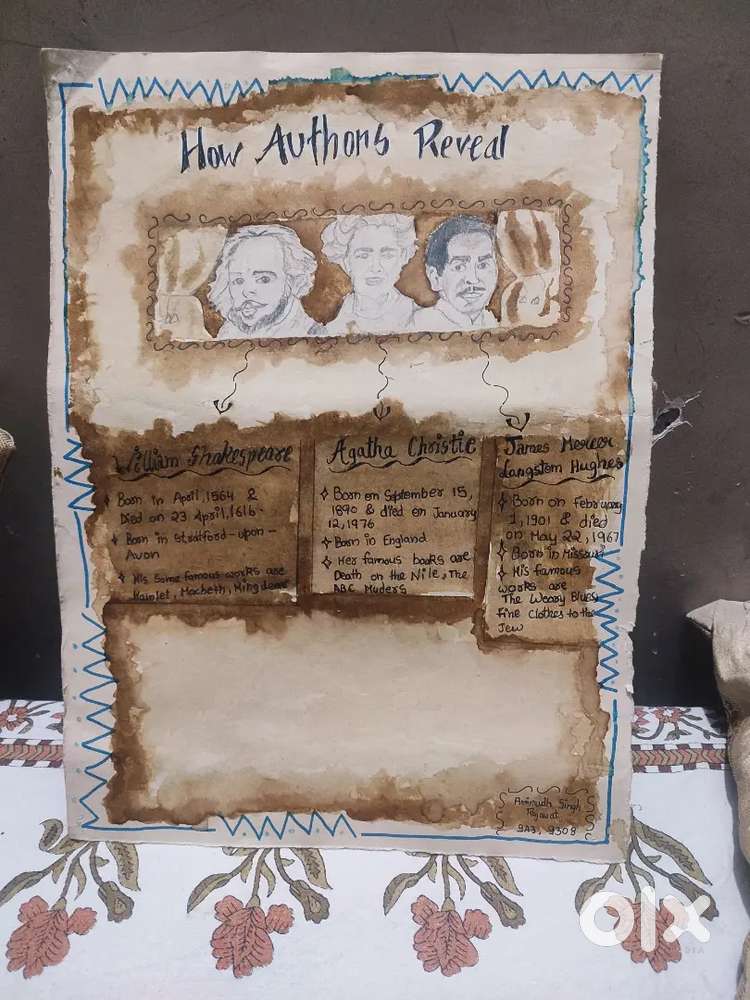 How Authors Reveal
William Shakespeare
✧ Born in April, 1564 &
Died on 23 April, 1616.
✧ Born in Stratford-upon-
Avon
✧ His some famous works are
Hamlet, Macbeth, King Lear
Agatha Christie
✧ Born on September 15,
1890 & died on January
12, 1976
✧ Born in England
✧ Her famous books are
Death on the Nile, The
ABC Muders
James Mercer
Langstom Hughes
✧ Born on february
1, 1901 & died
on May 22, 1967
✧ Born in Missouri
✧ His famous
works are
The Weary Blues,
Fine Clothes to the
Jew
Anirudh Singh
9A3, 9308
olx